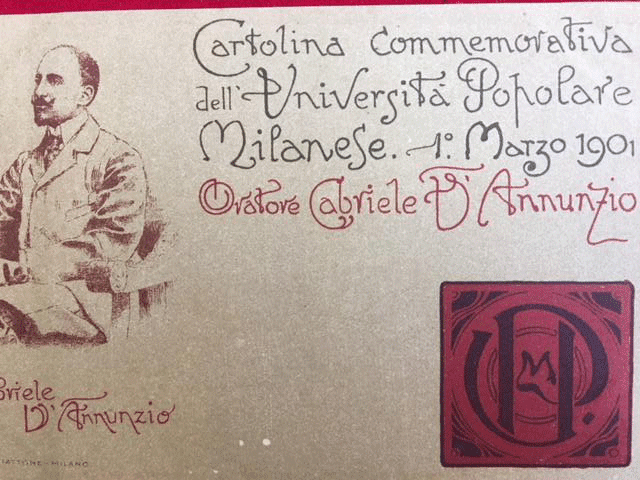 Cartolina Commemorativa
dell' Università Popolare
Milanese. - 1º. Marzo 1901
Oratore Gabriele D'Annunzio
D'Annunzio
MILANO